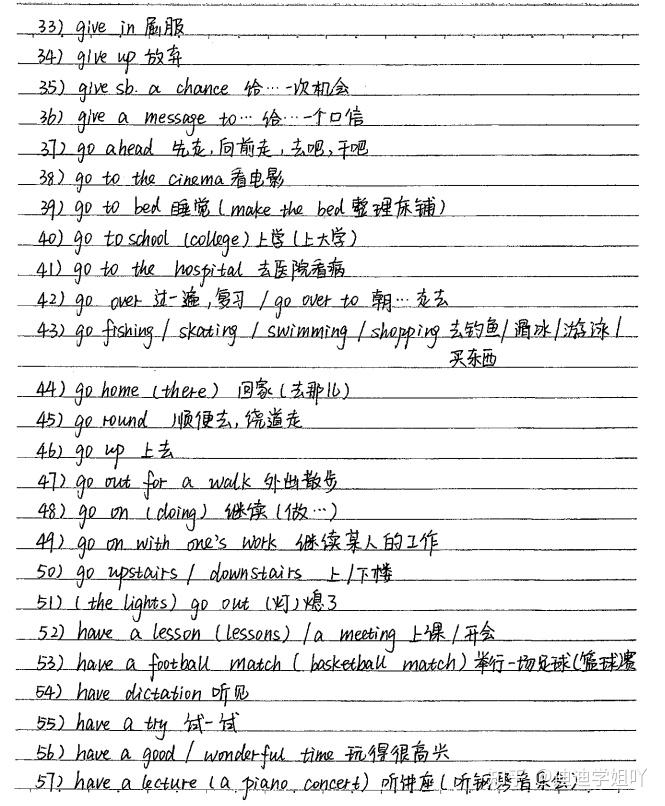 33) give in 屈服
34) give up 放弃
35) give sb. a chance 给…一次机会
36) give a message to… 给…一个口信
37) go ahead 先走,向前走,去吧,干吧
38) go to the cinema 看电影
39) go to bed 睡觉(make the bed 整理床铺)
40) go to school (college)上学(上大学)
41) go to the hospital 去医院看病
42) go over 过一遍,复习 / go over to 朝…走去
43) go fishing / skating / swimming / shopping 去钓鱼/滑冰/游泳/
买东西
44) go home (there) 回家(去那儿)
45) go round 顺便去,绕道走
46) go up 上去
47) go out for a walk 外出散步
48) go on (doing) 继续(做…)
49) go on with one's work 继续某人的工作
50) go upstairs / downstairs 上/下楼
51) (the lights) go out (灯)熄了
52) have a lesson (lessons) / a meeting 上课/开会
53) have a football match ( basketball match) 举行一场足球(篮球)赛
54) have dictation 听见
55) have a try 试一试
56) have a good / wonderful time 玩得很高兴
57) have a lecture (a piano concert) 听讲座(听钢琴音乐会)
知乎 @迪迪学姐吖